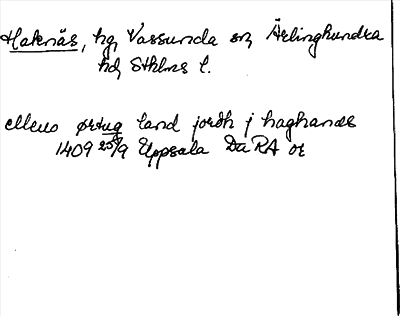 Haknäs, hg, Vassunda sn, Ärlinghundra
hd, Sthlms l.
ellevo ørtug land jordh j haghanæs
1409 25/9 Uppsala Da RA or